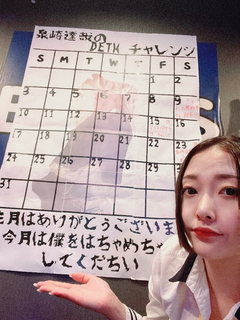 泉崎達哉の
DETH チャレンジ
S M T W T F S
1 2
3 4 5 6 7 8 9
10 11 12 13 14 15 16
17 18 19 20 21 22 23
24 25 26 27 28 29 30
31
先月はありがとうございま
今月は僕をはちゃめちゃ
してください